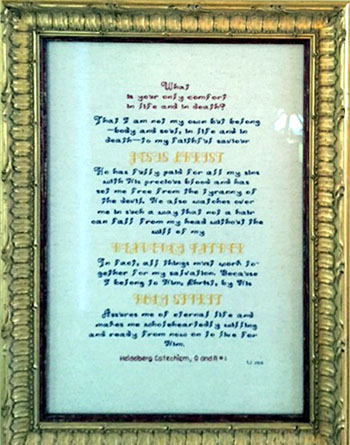 What
is your only comfort
in life and in death?
That I am not my own but belong
-body and soul, in life and in
death-to my faithful saviour
JESUS CHRIST
He has fully paid for all my sins
with His precious blood and has
set me free from the tyranny of
the devil. He also watches over
me in such a way that not a hair
can fall from my head without the
will of my
HEAVENLY FATHER
In fact, all things must work to-
gether for my salvation. Because
I belong to Him, Christ, by His
HOLY SPIRIT
Assures me of eternal life and
makes me wholeheartedly willing
and ready from now on to live for
Him.
Heidelberg Catechism, Q and A #1